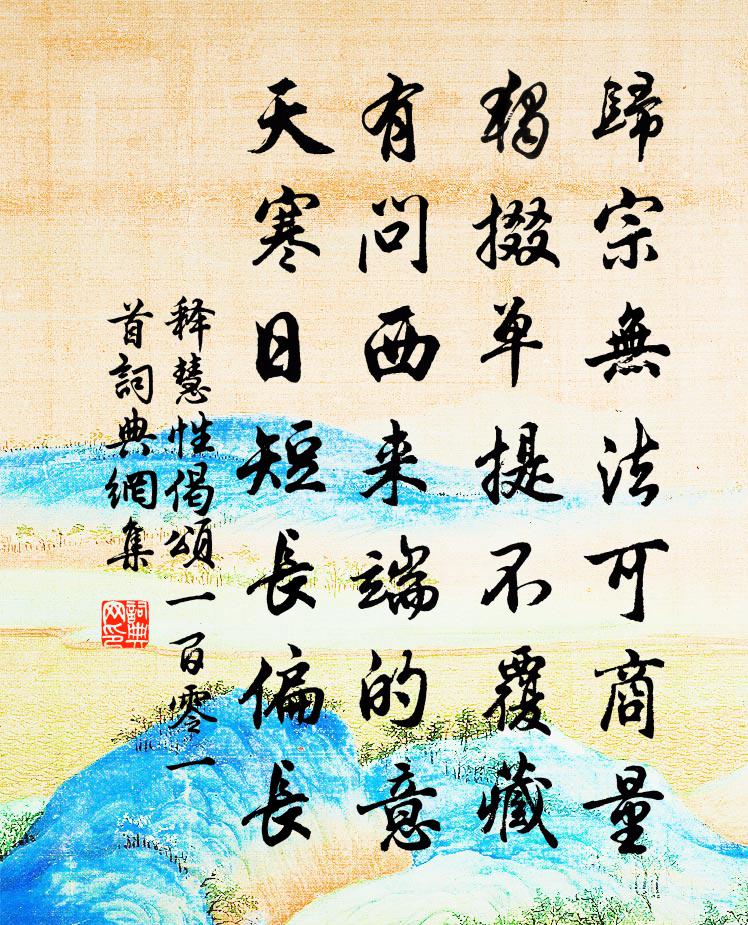 歸宗無法可商量
獨掇单提不覆藏
有問西来端的意
天寒日短長偏長
释慧性偈頌一百零一
首詞典網集
詞典网印